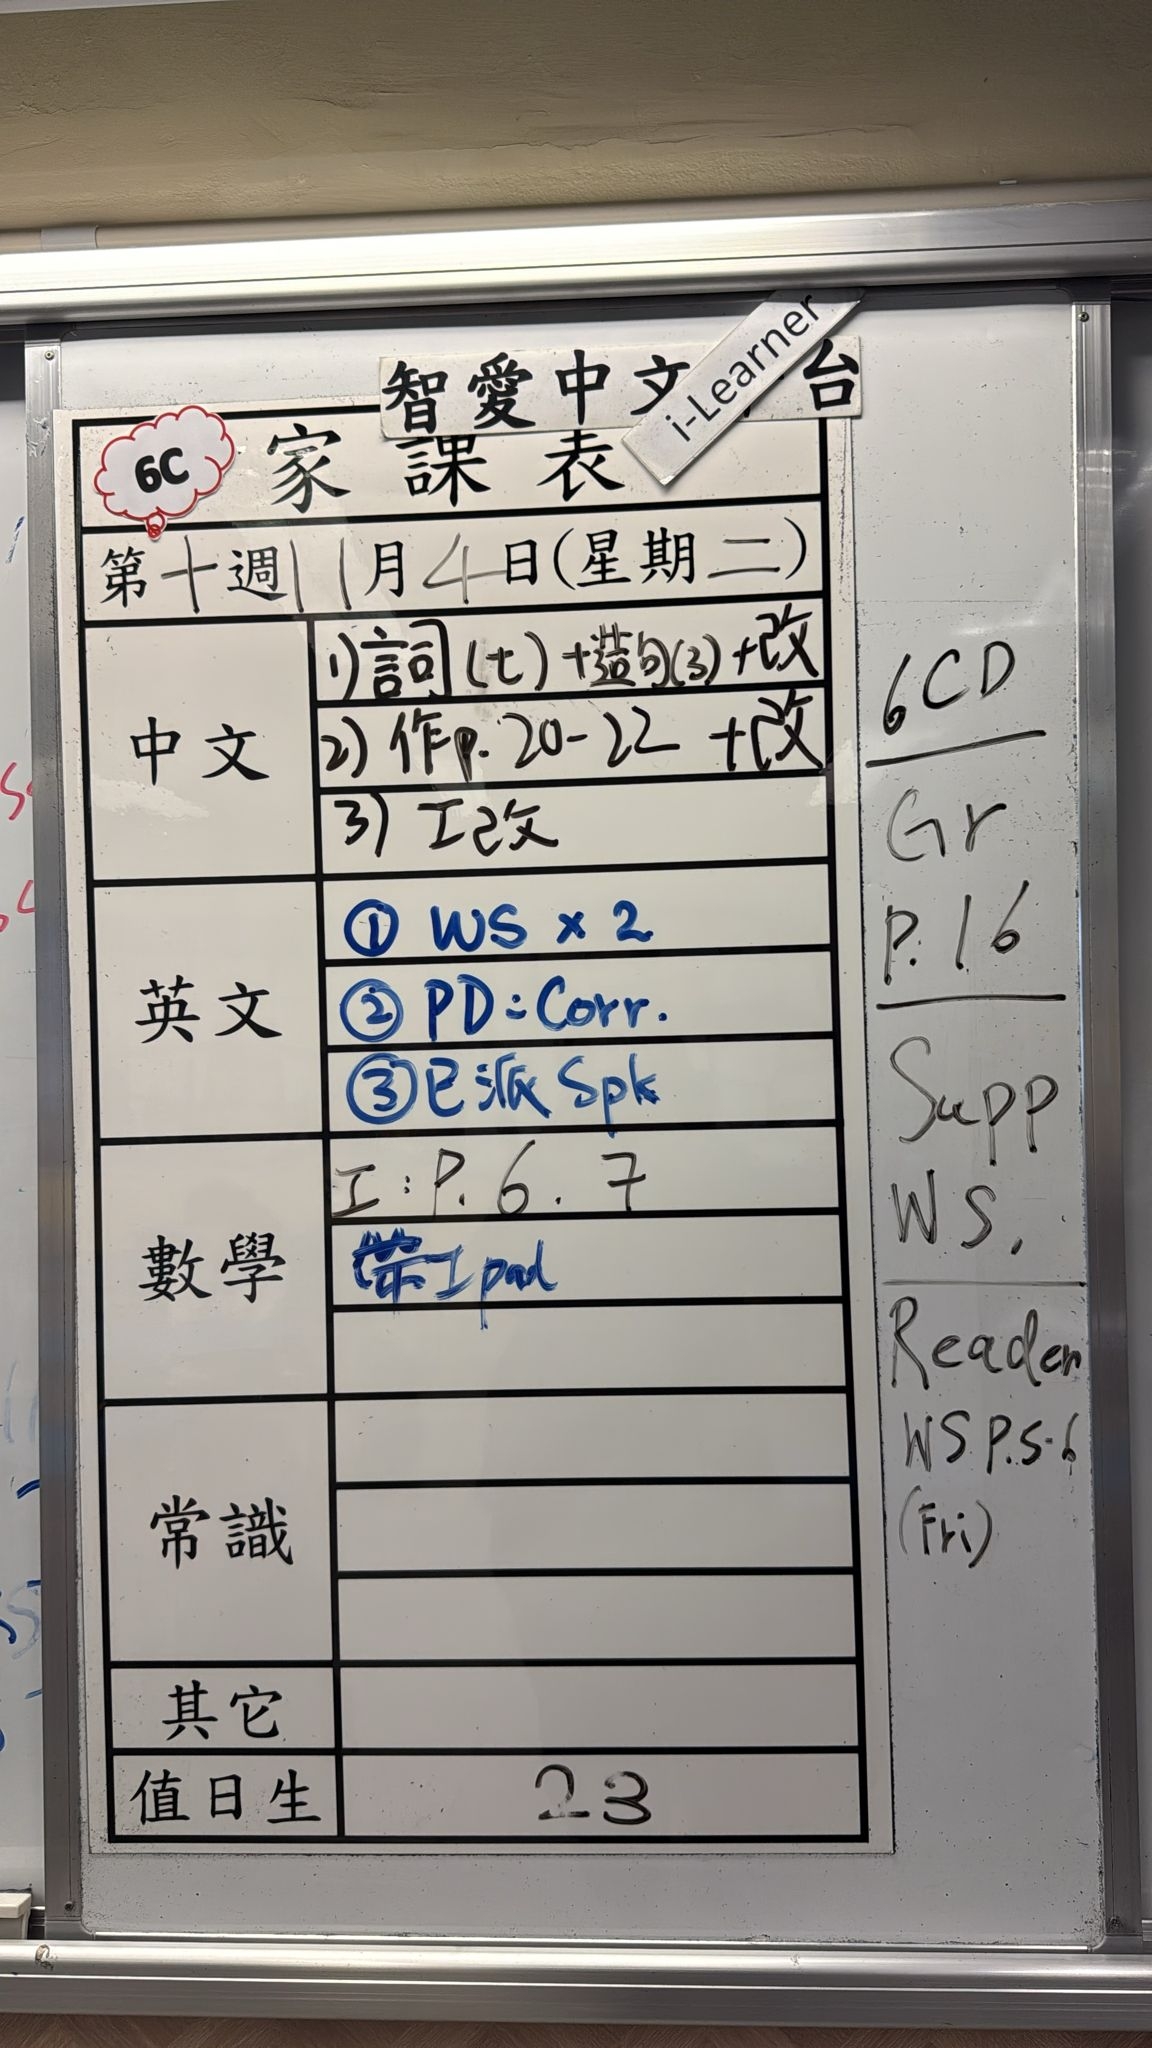 智愛中文 台
i-Learner
6C
家課表
第十週11月4日(星期二)
中文
1) 詞(七)+造句(3)+改
2) 作p. 20-22 +改
3) 工改
英文
① WS x 2
② PD: Corr.
③ 已派 Spk
數學
工: P. 6. 7
帶Ipad
常識
其它
值日生
23
6CD
Gr
P. 16
Supp
WS.
Reader
WS P.5-6
(Fri)